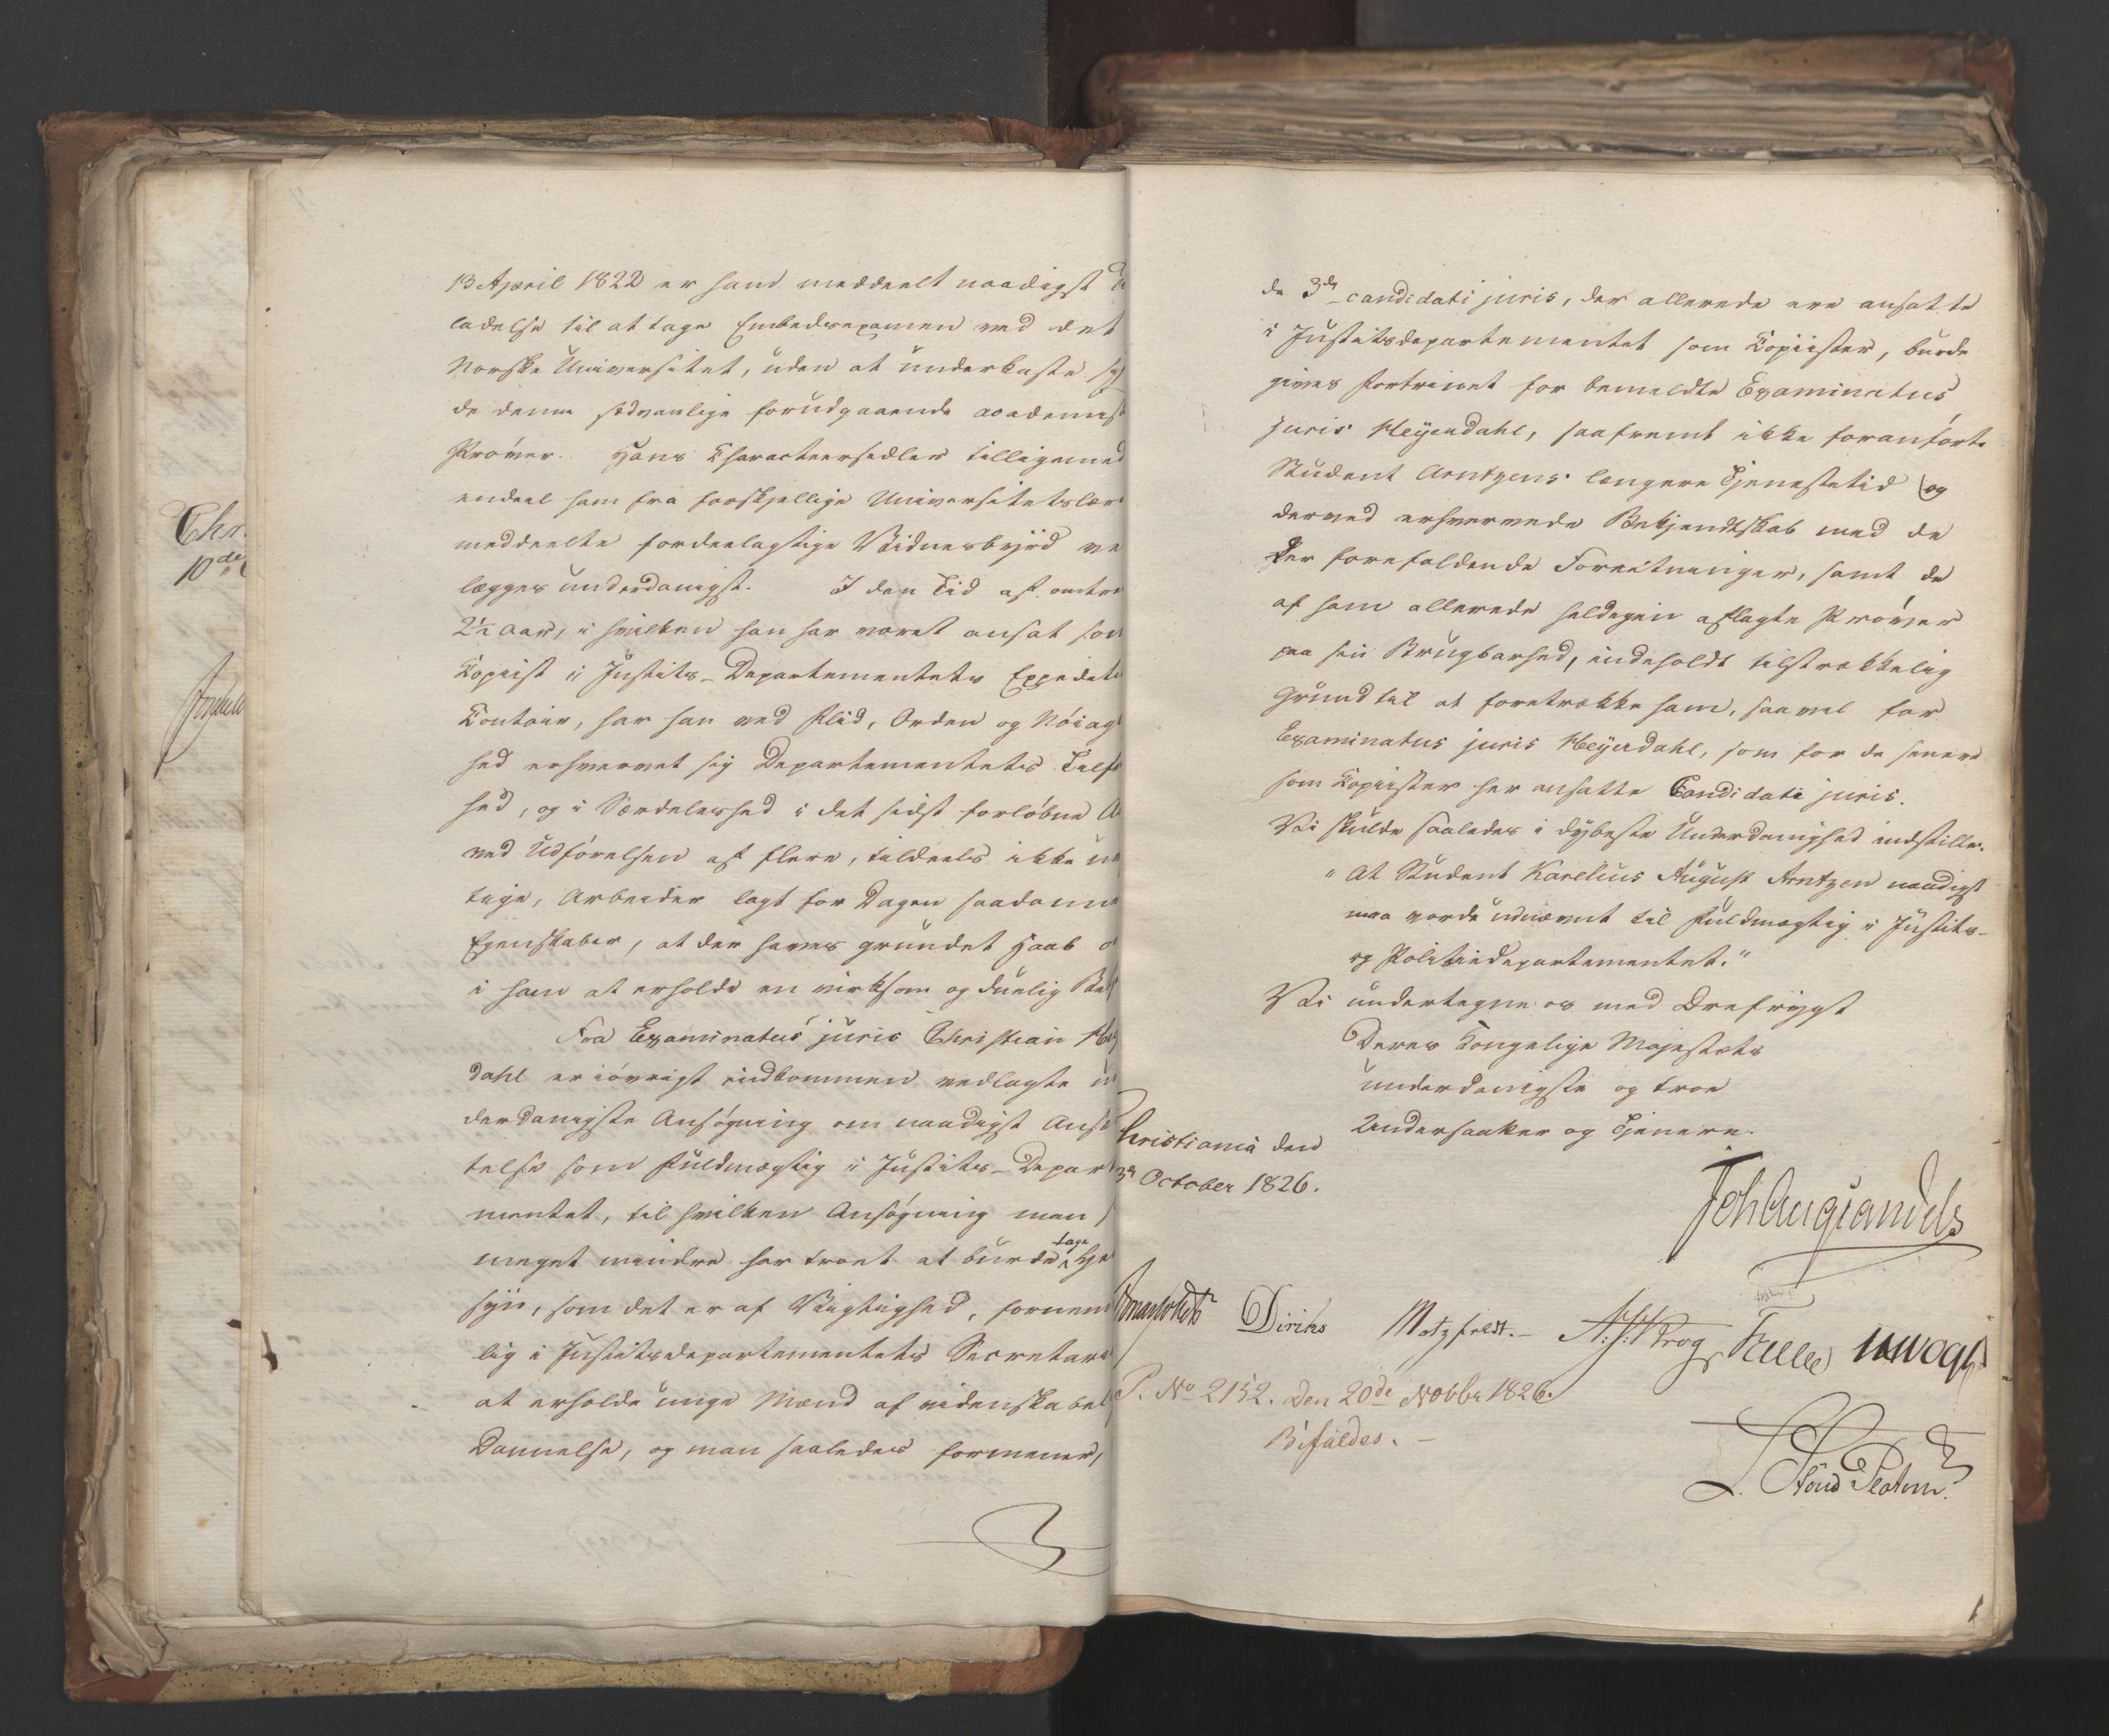 13 April 1822 er ham meddeelt naadigst
ladelse til at tage Embedsexamen ved det
Norske Universitet, uden at underkaste sig
de denne sædvanlige forudgaaende academisk
Prøver. Hans Characteersedler tilligemed
endeel ham fra forskjellige Universitetslær
meddeelte fordeelagtige Vidnesbyrd ve
lægges underdanigst. I den Tid af omtre
2½ Aar, i hvilken han har været ansat som
Copiist i Justits-Departementets Expedit
Contoir, har han ved Flid, Orden og Nøiag
hed erhvervet sig Departementets Tilfr
hed, og i Særdeleshed i det sidst forløbne A
ved Udførelsen af flere, tildeels ikke u
tige, Arbeider lagt for Dagen saadanne
Egenskaber, at der haves grundet Haab o
i ham at erholde en virksom og duelig Be
Fra Examinatus juris Christian Hey
dahl er iøvrigt indkommen vedlagte un
derdanigste Ansøgning om naadigst Ansæ
telse som Fuldmægtig i Justits-Depart
mentet, til hvilken Ansøgning man
meget mindre har troet at burde tage Hen
syn, som det er af Vigtighed, fornem
lig i Justitsdepartementets Secretari
at erholde unge Mænd af videnskabel
Dannelse, og man saaledes formener,
Chr.
10de
de 3de candidati juris, der allerede ere ansatte
i Justitsdepartementet som Copiister, burde
gives Fortrinet for bemeldte Examinatus
juris Heyerdahl, saafremt ikke foranførte
Student Arntzens længere Tjenestetid og
derved erhvervede Bekjendtskab med de
der forefaldende Forretninger, samt de
af ham allerede heldigen aflagte Prøver
paa sin Brugbarhed, indeholdt tilstrækkelig
Grund til at foretrække ham, saavel for
Examinatus juris Heyerdahl, som for de senere
som Copiister her ansatte Candidati juris.
Vi skulde saaledes i dybeste Underdanighed indstille.
"At Student Karelius August Arntzen naadigst
maa vorde udnævnt til Fuldmægtig i Justits-
og Politiedepartementet."
Vi undertegne os med Ærefrygt
Deres Kongelige Majestæts
underdanigste og troe
Undersaatter og Tjenere.
Christiania den
3de October 1826.
Joh Aug Sandels
Diriks Motzfeldt. A. S. Krog Treschow
P. No 2152. Den 20de Novbr 1826.
Bifaldes.